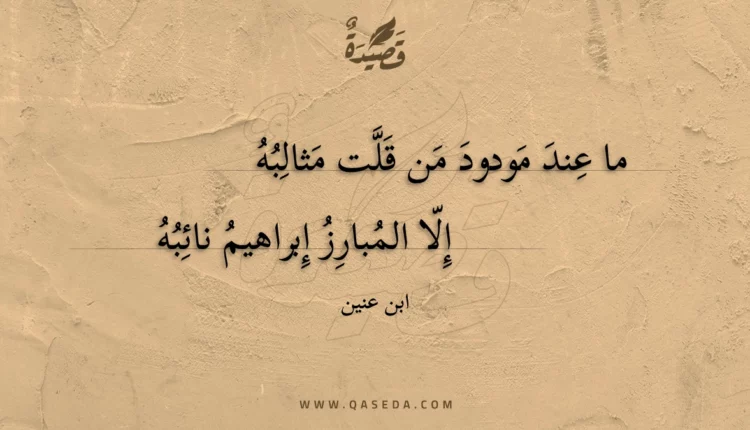 قَصِيْدَةٌ
ما عِندَ مَودودَ مَن قَلَّت مَثالِبُهُ
إِلّا المُبارِزُ إِبراهيمُ نائِبُهُ
ابن عنين
WWW.QASEDA.COM